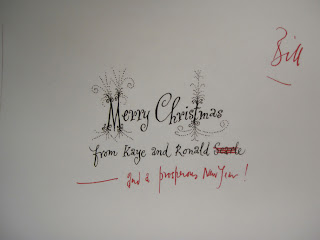 Bill
Merry Christmas
from Kaye and Ronald Searle
and a prosperous New Year!